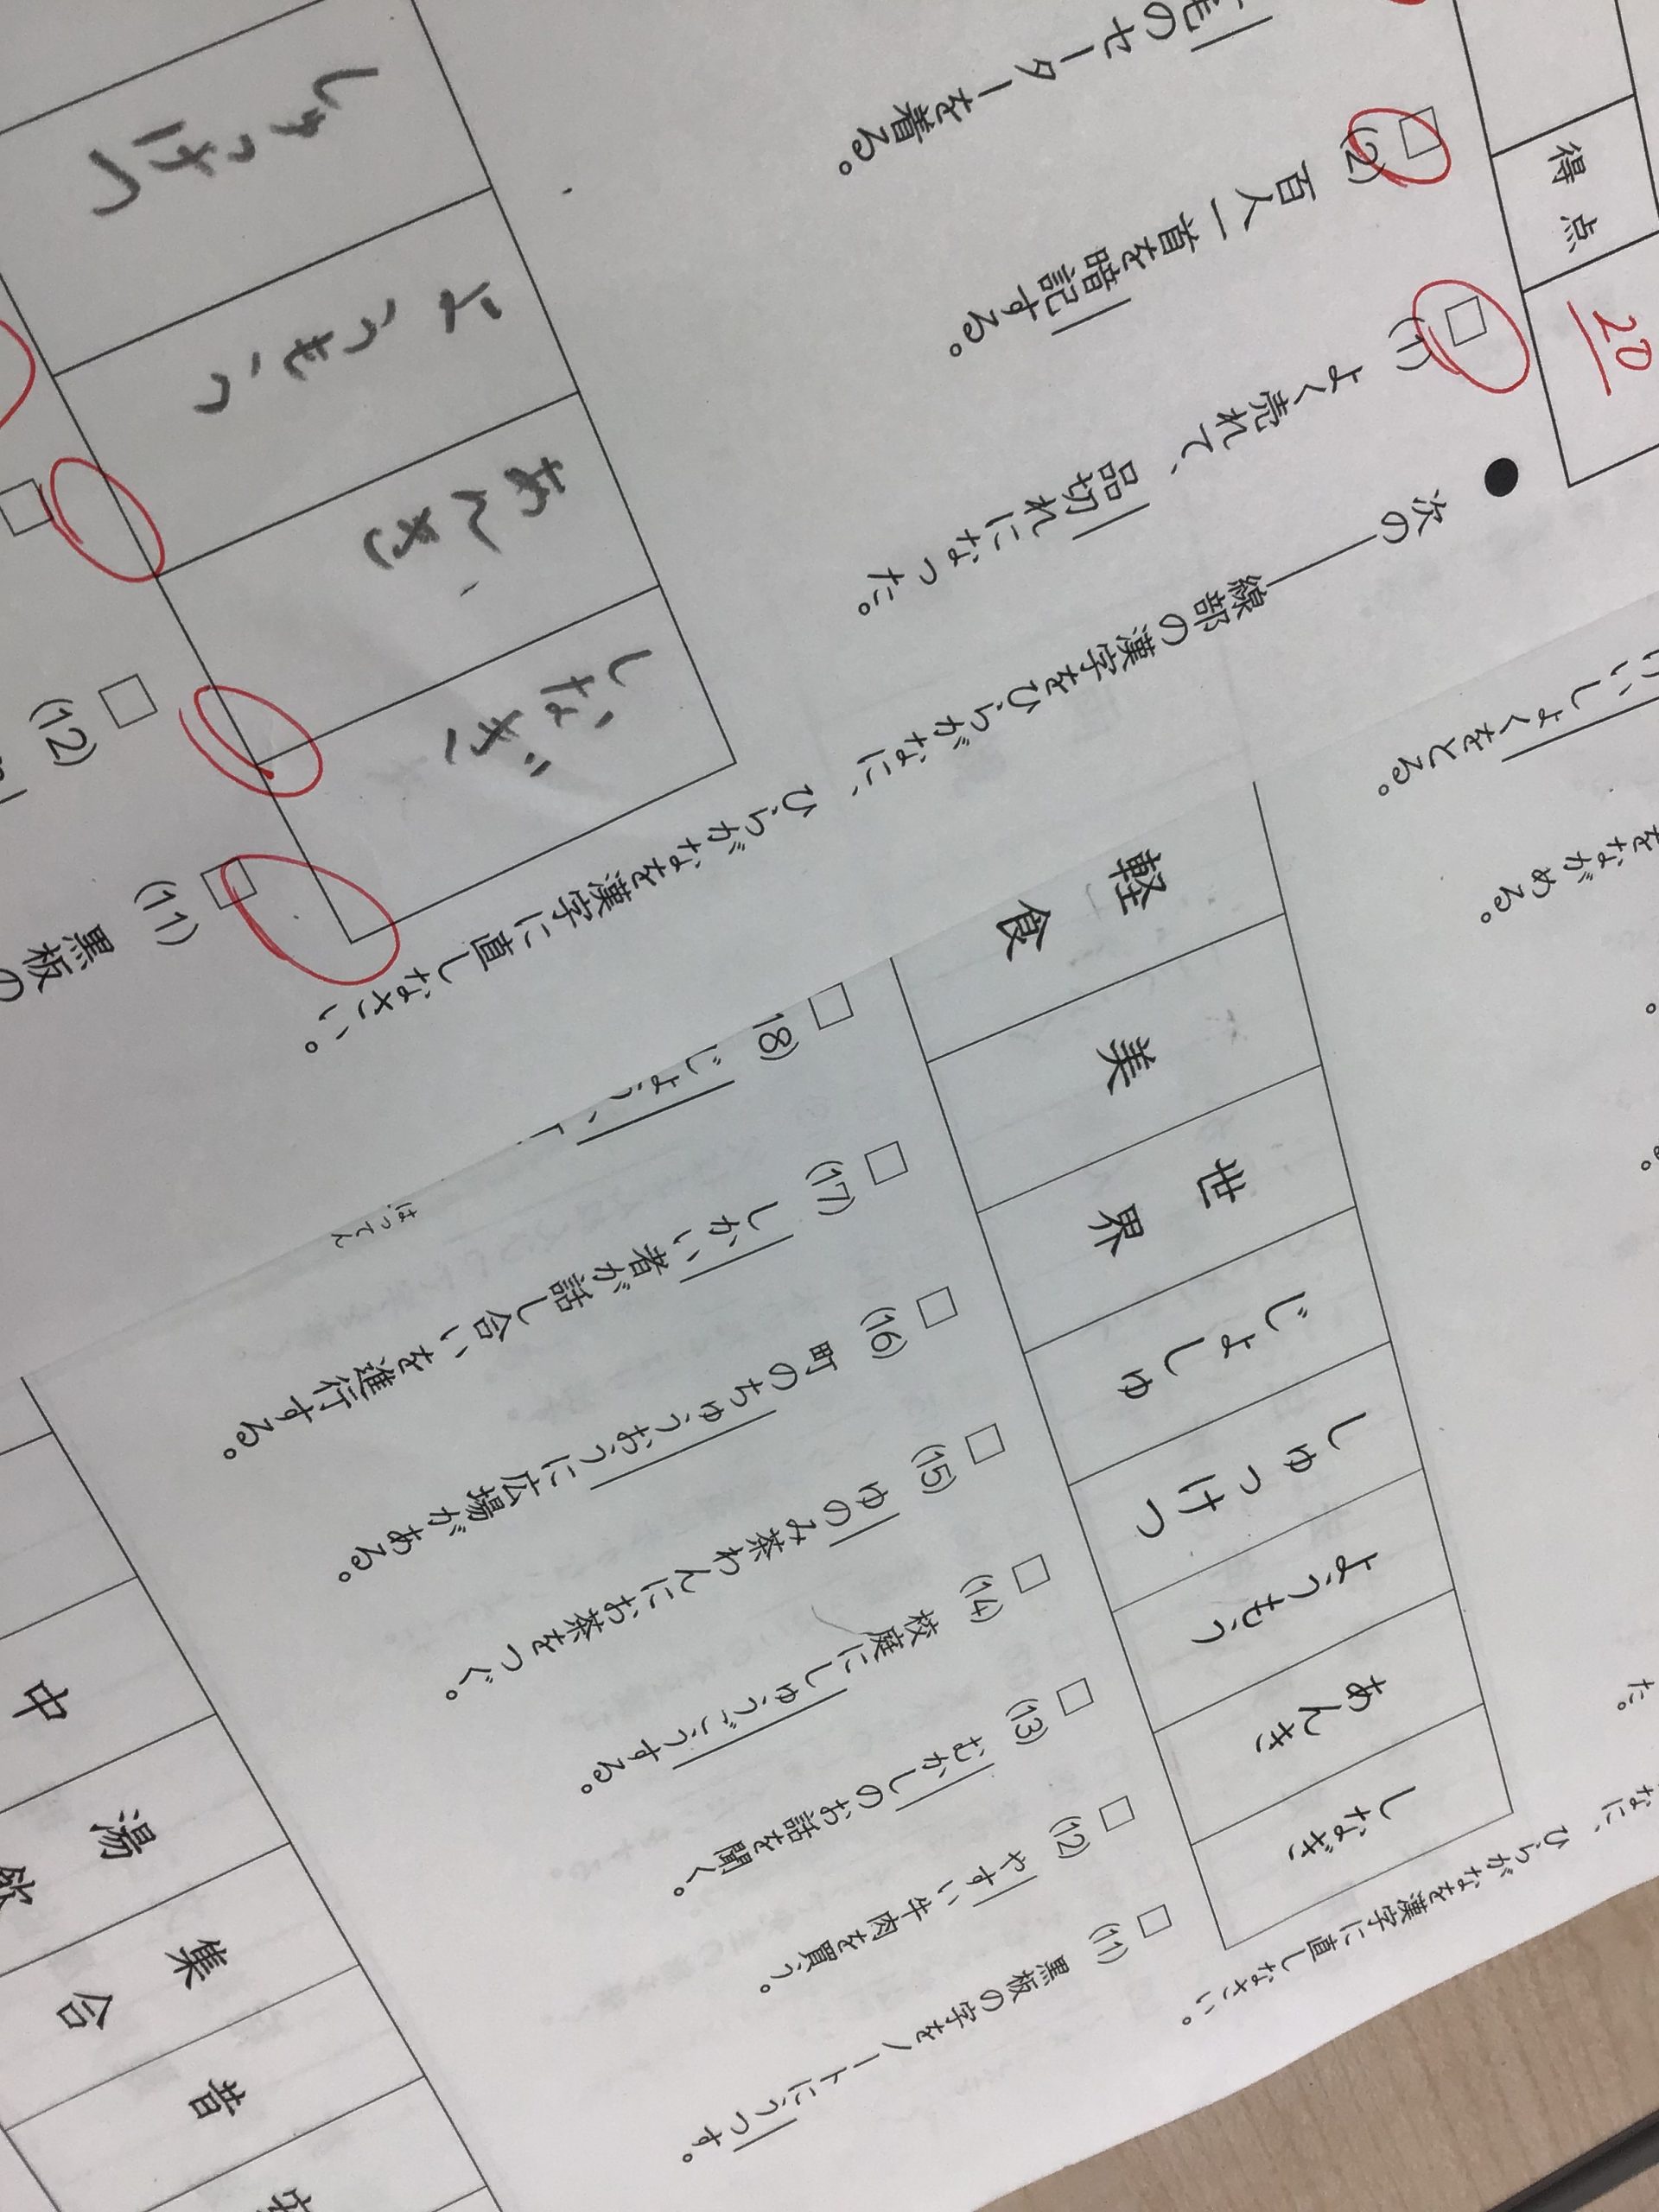 得点
20
●次の――線部の漢字をひらがなに、ひらがなを漢字に直しなさい。
(1) よく売れて、品切れになった。
(2) 百人一首を暗記する。
毛のセーターを着る。
しなぎ
あんき
ようもう
しゅっけつ
(11) 黒板の
(12)
なに、ひらがなを漢字に直しなさい。
た。
をながめる。
いしょくをとる。
しなぎ
あんき
ようもう
しゅっけつ
じょしゅ
世界
美
軽食
(11) 黒板の字をノートにうつす。
(12) やすい牛肉を買う。
(13) むかしのお話を聞く。
(14) 校庭にしゅうごうする。
(15) ゆのみ茶わんにお茶をつぐ。
(16) 町のちゅうおうに広場がある。
(17) しかい者が話し合いを進行する。
18)
はってん
昔
集合
湯飲
中